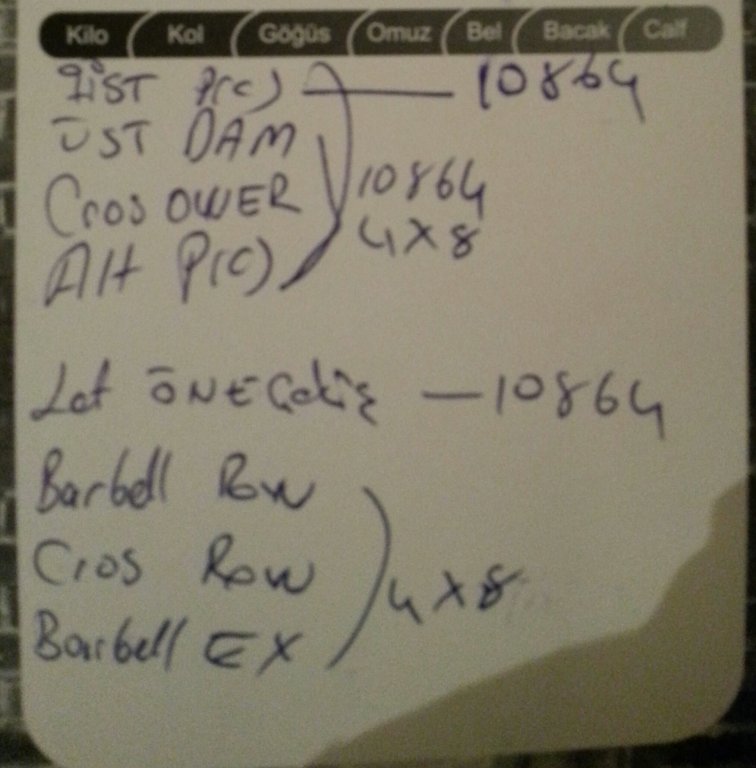 Kilo Kol Göğüs Omuz Bel Bacak Calf
ÜST P(C) — 10864
ÜST DAM
Cros OWER 10864
4X8
Alt P(C)
Lat ÖNE Çekiş — 10864
Barbell Row
Cros Row 4X8
Barbell EX